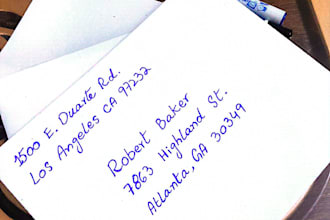 1500 E. Duarte Rd.
Los Angeles CA 97232
Robert Baker
7863 Highland St.
Atlanta, GA 30349